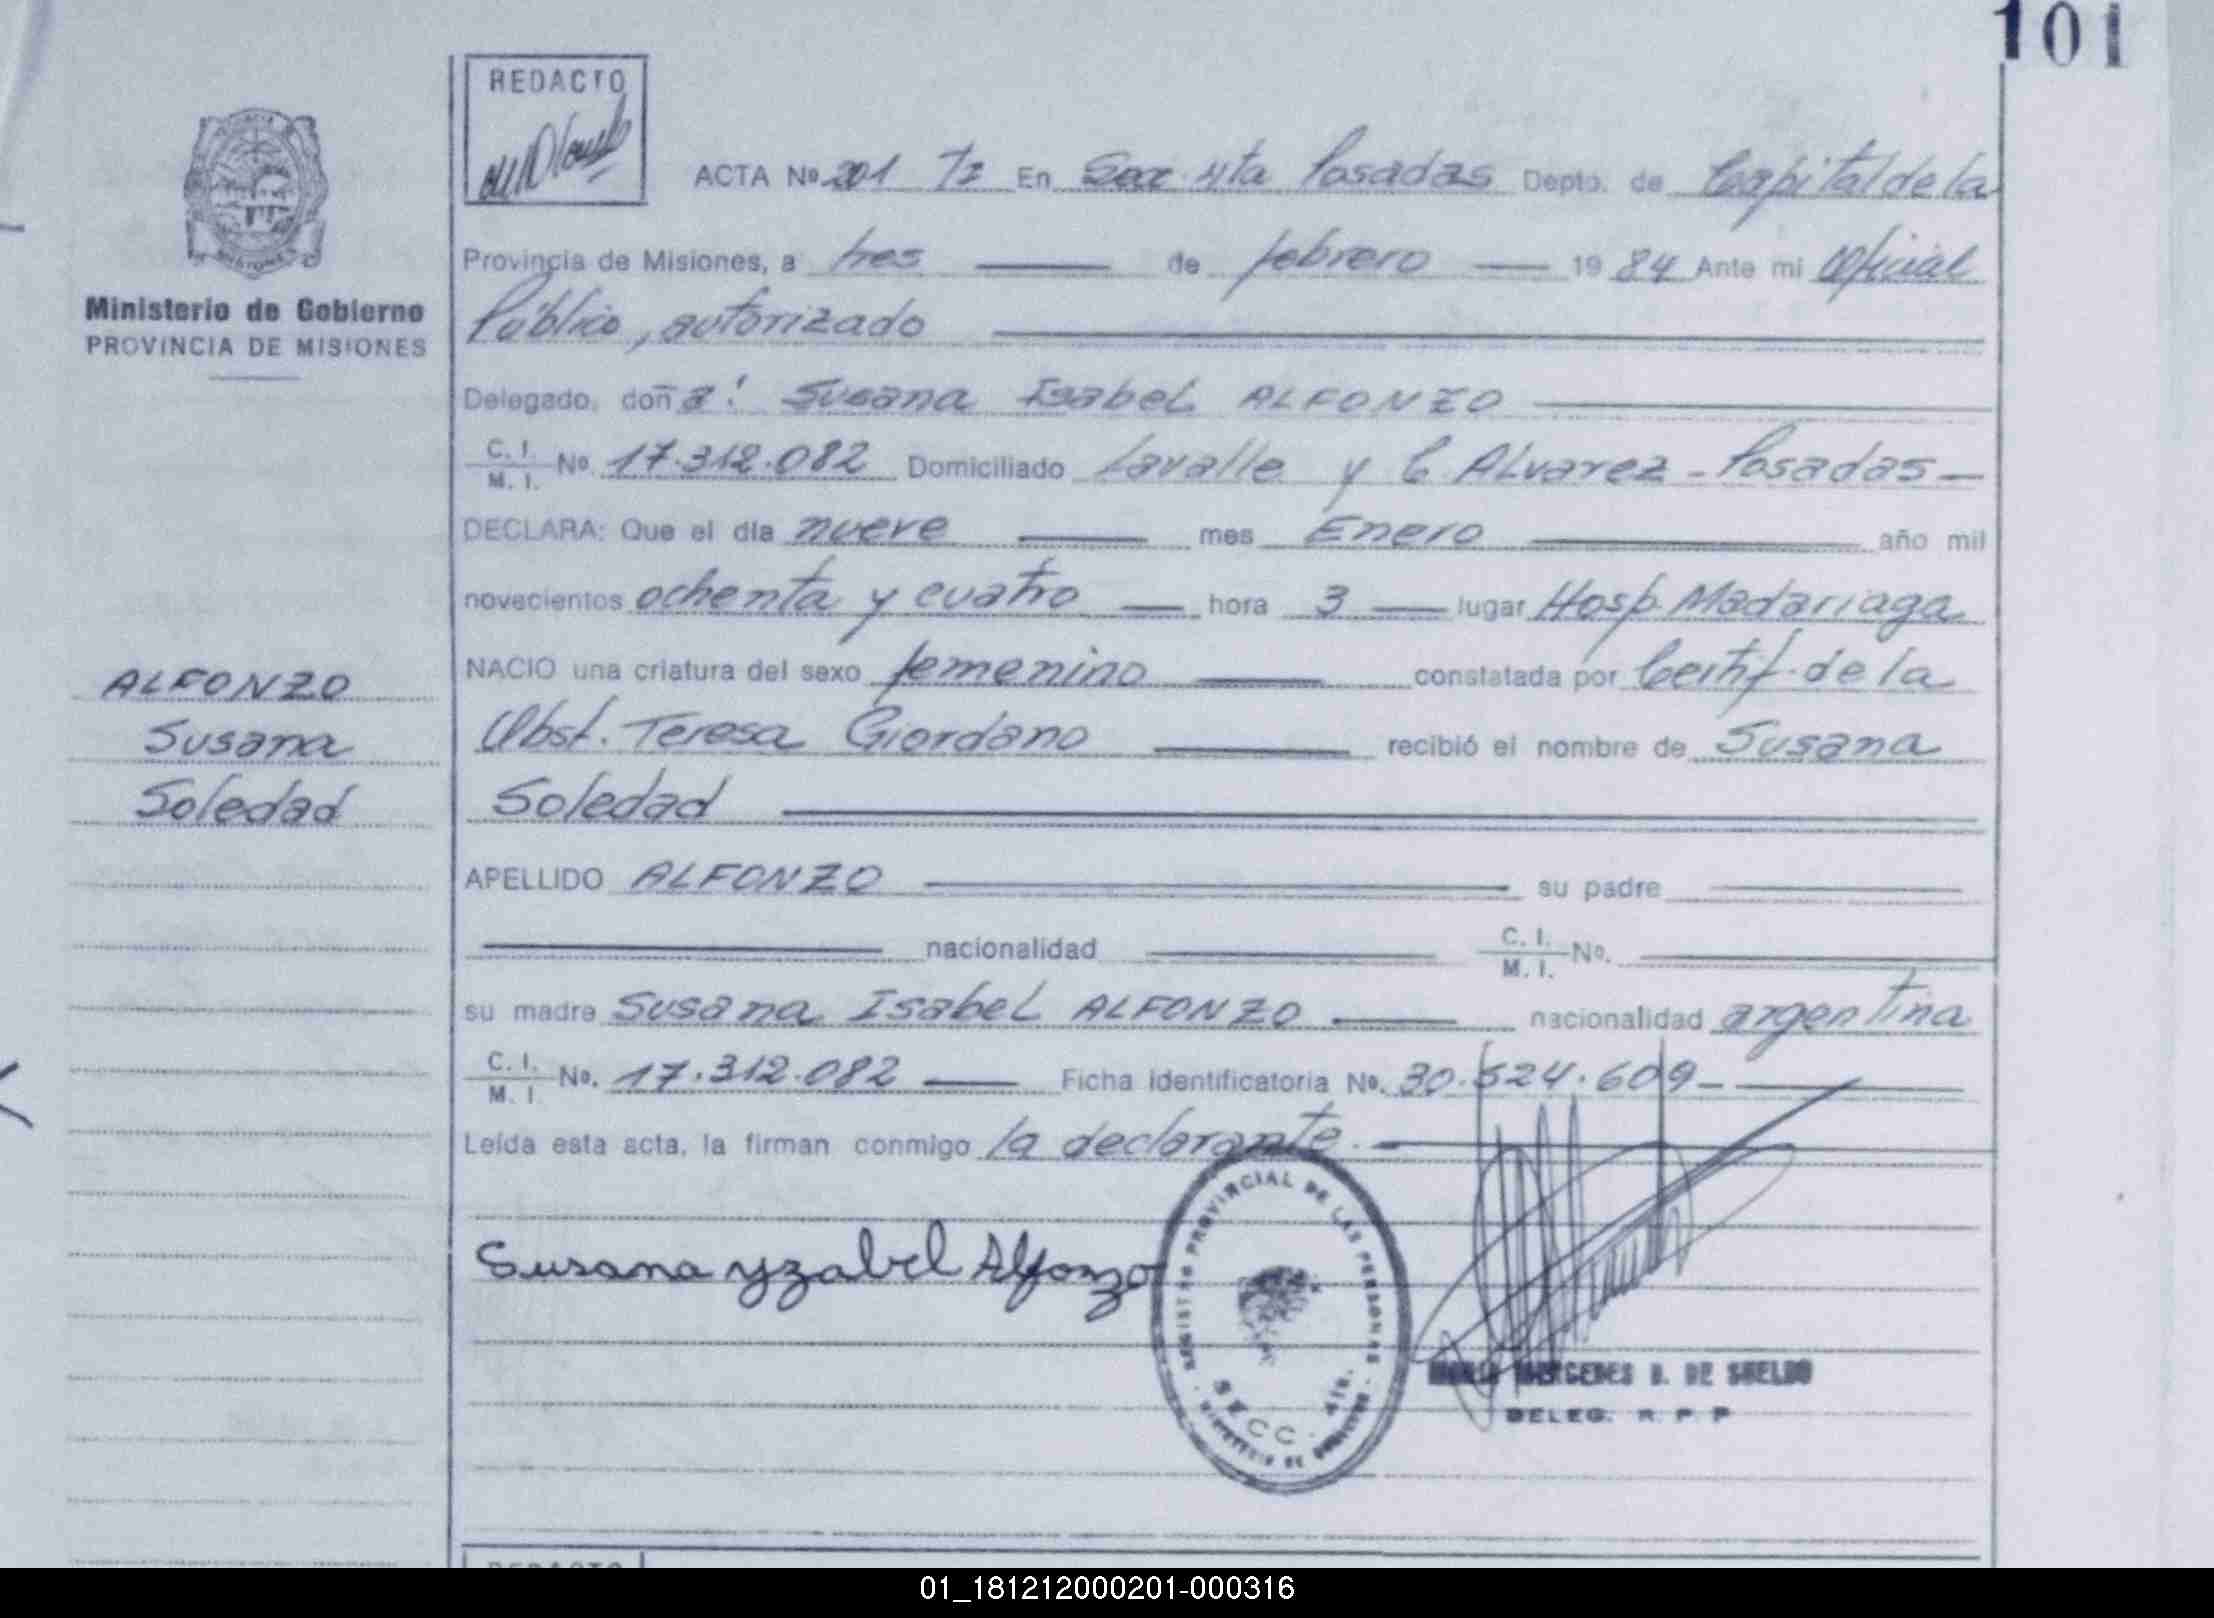 101
REDACTO
ACTA Nº 201 T2 En Secc. 4ta Posadas Depto. de Capital de la
Provincia de Misiones, a tres de febrero 1984 Ante mi Oficial
Público, autorizado
Ministerio de Gobierno
PROVINCIA DE MISIONES
Delegado, doña: Susana Isabel ALFONZO
C. I. M. I. Nº 17.312.082 Domiciliado Lavalle y C ALvarez - Posadas -
DECLARA: Que el día nueve mes Enero año mil
novecientos ochenta y cuatro hora 3 lugar Hosp. Madariaga
NACIO una criatura del sexo femenino constatada por Certif. de la
Obst. Teresa Giordano recibió el nombre de Susana
Soledad
ALFONZO
Susana
Soledad
APELLIDO ALFONZO su padre
nacionalidad C. I. M. I. Nº.
su madre Susana Isabel ALFONZO nacionalidad argentina
C. I. M. I. Nº. 17.312.082 Ficha Identificatoria Nº. 30.524.609 -
Leída esta acta, la firman conmigo la declarante.
Susana Yzabel Alfonzo
REGISTRO PROVINCIAL DE LAS PERSONAS
SECC. 4ta.
MINISTERIO DE GOBIERNO
D. DE SUELDO
DELEG. R. P. P
REDACTO
01_181212000201-000316